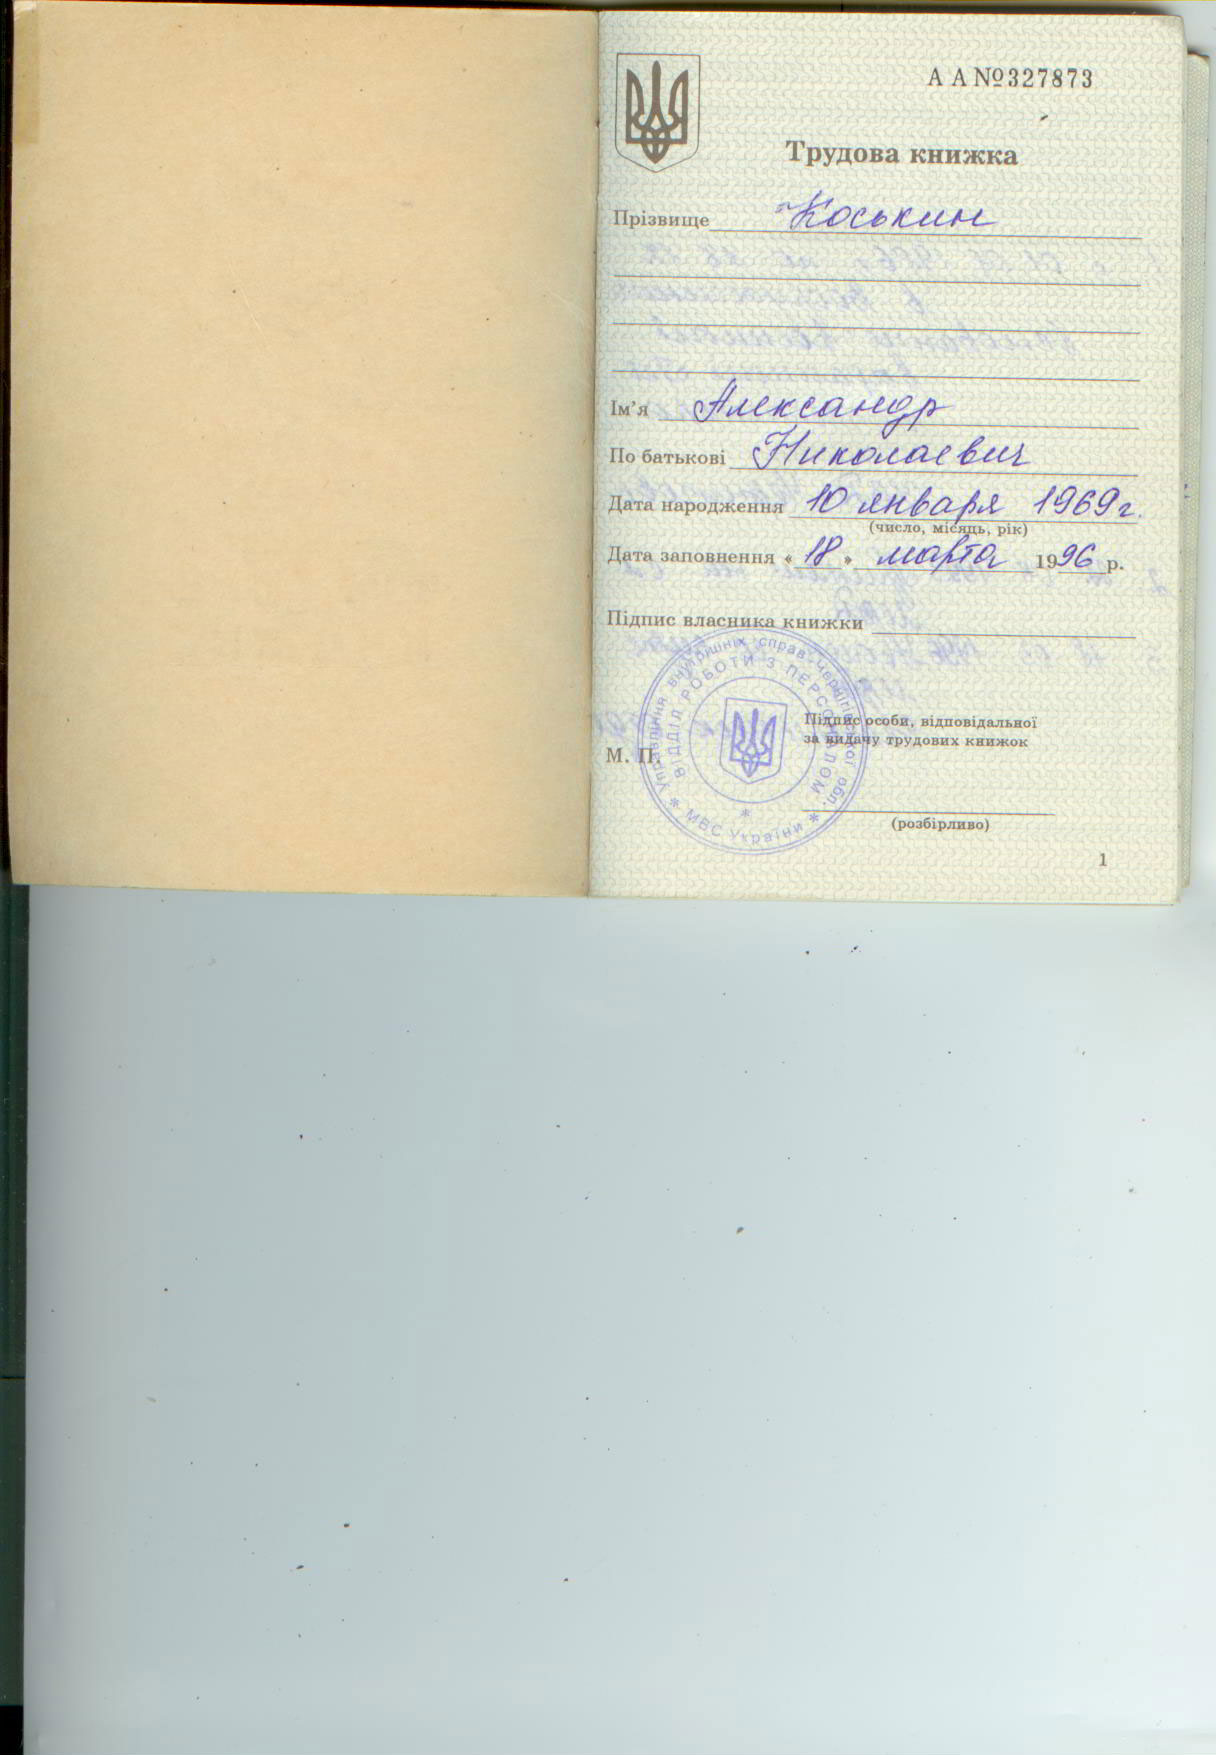 А А №327873
Трудова книжка
Прізвище Коськин
Ім'я Александр
По батькові Николаевич
Дата народження 10 января 1969 г.
(число, місяць, рік)
Дата заповнення « 18 » марта 1996 р.
Підпис власника книжки
Управління внутрішніх справ Чернігівської обл.
ВІДДІЛ РОБОТИ З ПЕРСОНАЛОМ
МВС України
Підпис особи, відповідальної
за видачу трудових книжок
М. П.
(розбірливо)
1